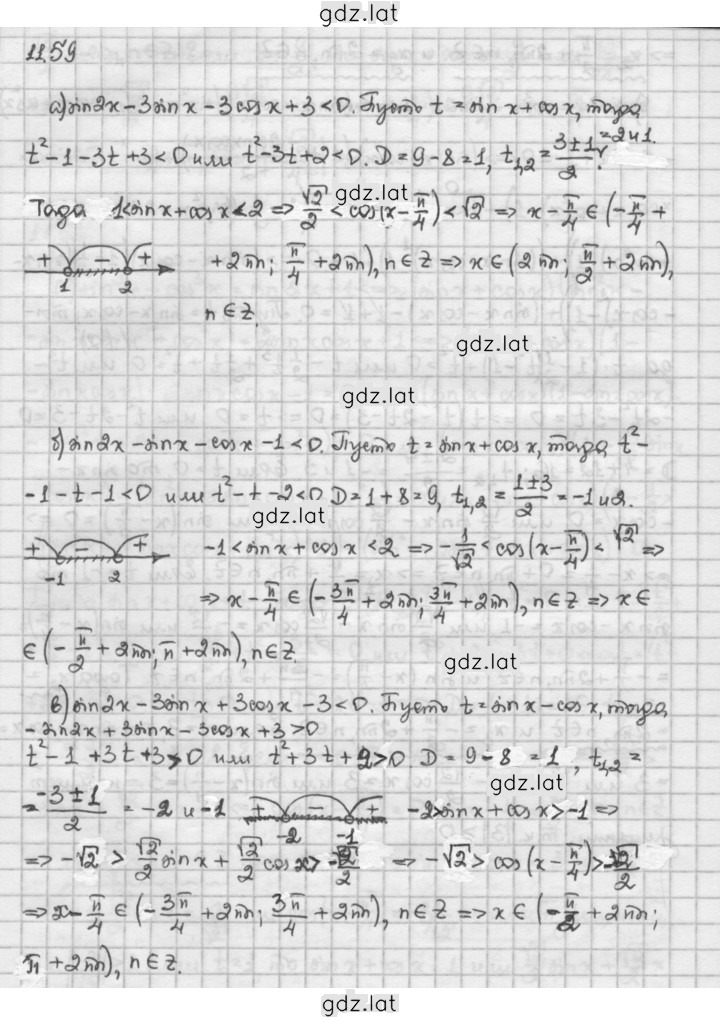 gdz.lat
11.59
а) sin2x − 3sinx − 3cosx + 3 < 0. Пусть t = sin x + cosx, тогда
t² − 1 − 3t + 3 < 0 или t² − 3t + 2 < 0. D = 9 − 8 = 1, t₁,₂ = (3±1)/2 = 2 и 1.
gdz.lat
Тогда 1 < sinx + cosx < 2 ⇒ √2/2 < cos(x − π/4) < √2 ⇒ x − π/4 ∈ (−π/4 +
+ − + 1 2 + 2πn; π/4 + 2πn), n ∈ Z ⇒ x ∈ (2πn; π/2 + 2πn),
n ∈ Z.
gdz.lat
gdz.lat
б) sin2x − sinx − cosx − 1 < 0. Пусть t = sinx + cosx, тогда t² −
− 1 − t − 1 < 0 или t² − t − 2 < 0. D = 1 + 8 = 9, t₁,₂ = (1±3)/2 = −1 и 2.
gdz.lat
+ − + −1 2 −1 < sinx + cosx < 2 ⇒ −1/√2 < cos(x − π/4) < √2 ⇒
⇒ x − π/4 ∈ (−3π/4 + 2πn; 3π/4 + 2πn), n ∈ Z ⇒ x ∈
∈ (−π/2 + 2πn; π + 2πn), n ∈ Z.
gdz.lat
в) sin2x − 3sinx + 3cosx − 3 < 0. Пусть t = sinx − cosx, тогда
− sin2x + 3sinx − 3cosx + 3 > 0
t² − 1 + 3t + 3 > 0 или t² + 3t + 2 > 0 D = 9 − 8 = 1, t₁,₂ =
gdz.lat
= (−3±1)/2 = −2 и −1 + − + −2 −1 −2 > sinx + cosx > −1 ⇒
⇒ −√2 > √2/2 sinx + √2/2 cosx > −√2/2 ⇒ −√2 > cos(x − π/4) > −√2/2
⇒ x − π/4 ∈ (−3π/4 + 2πn; 3π/4 + 2πn), n ∈ Z ⇒ x ∈ (−π/2 + 2πn;
π + 2πn), n ∈ Z.
gdz.lat